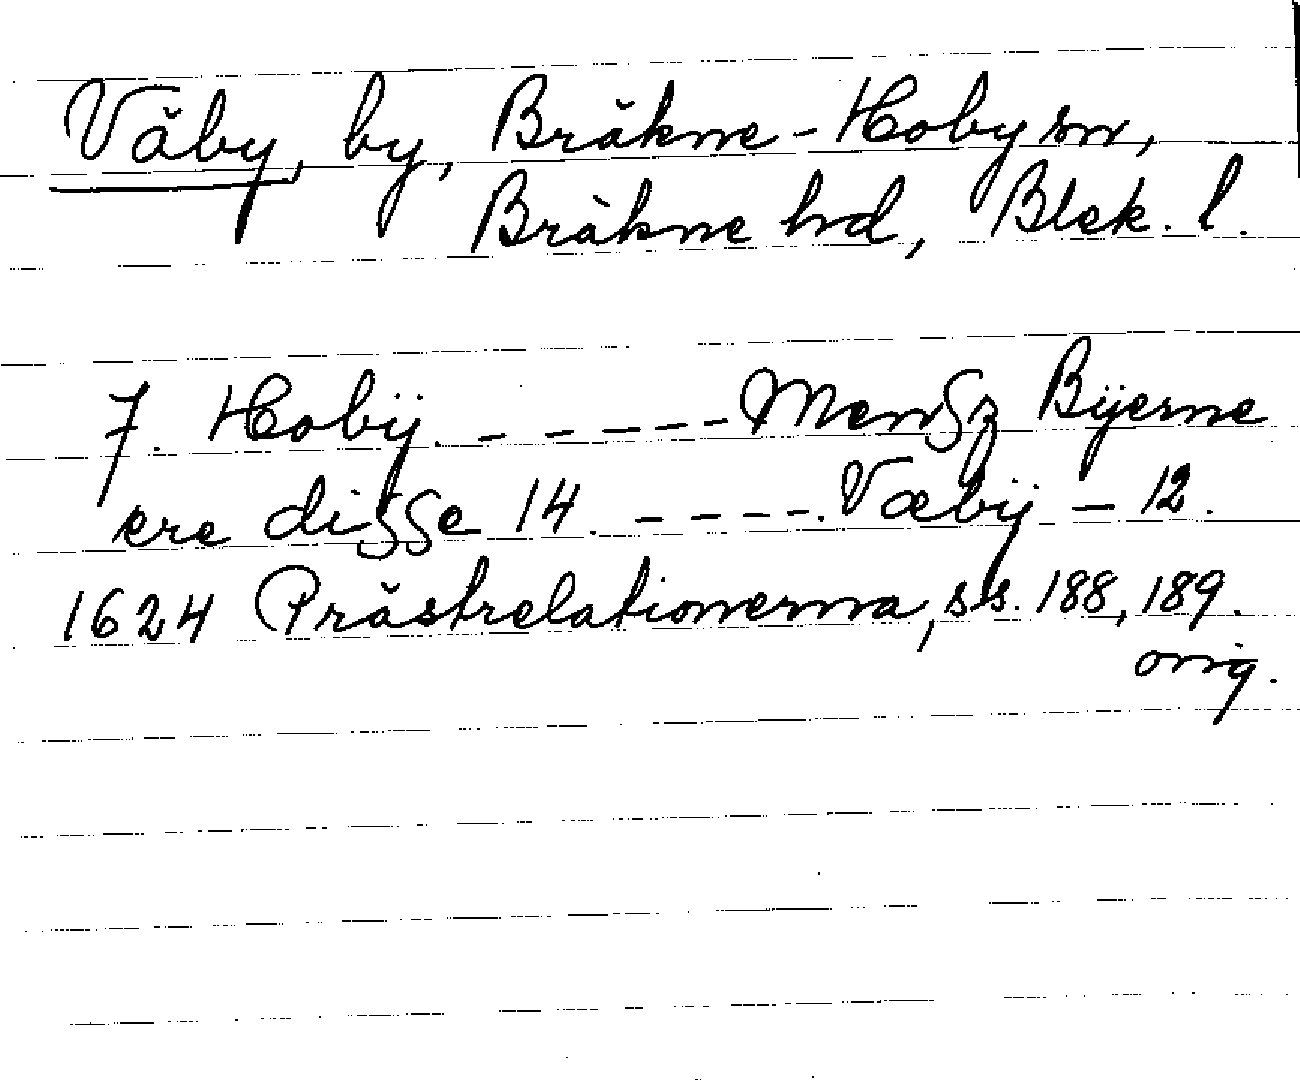 Väby, by, Bräkne-Hoby sn,
Bräkne hd, Blek. l.
7. Hobÿ. - - - - - Menβz Bÿerne
ere diββe 14. - - - - . Væbÿ - 12.
1624 Prästrelationerna, ss. 188, 189.
orig.